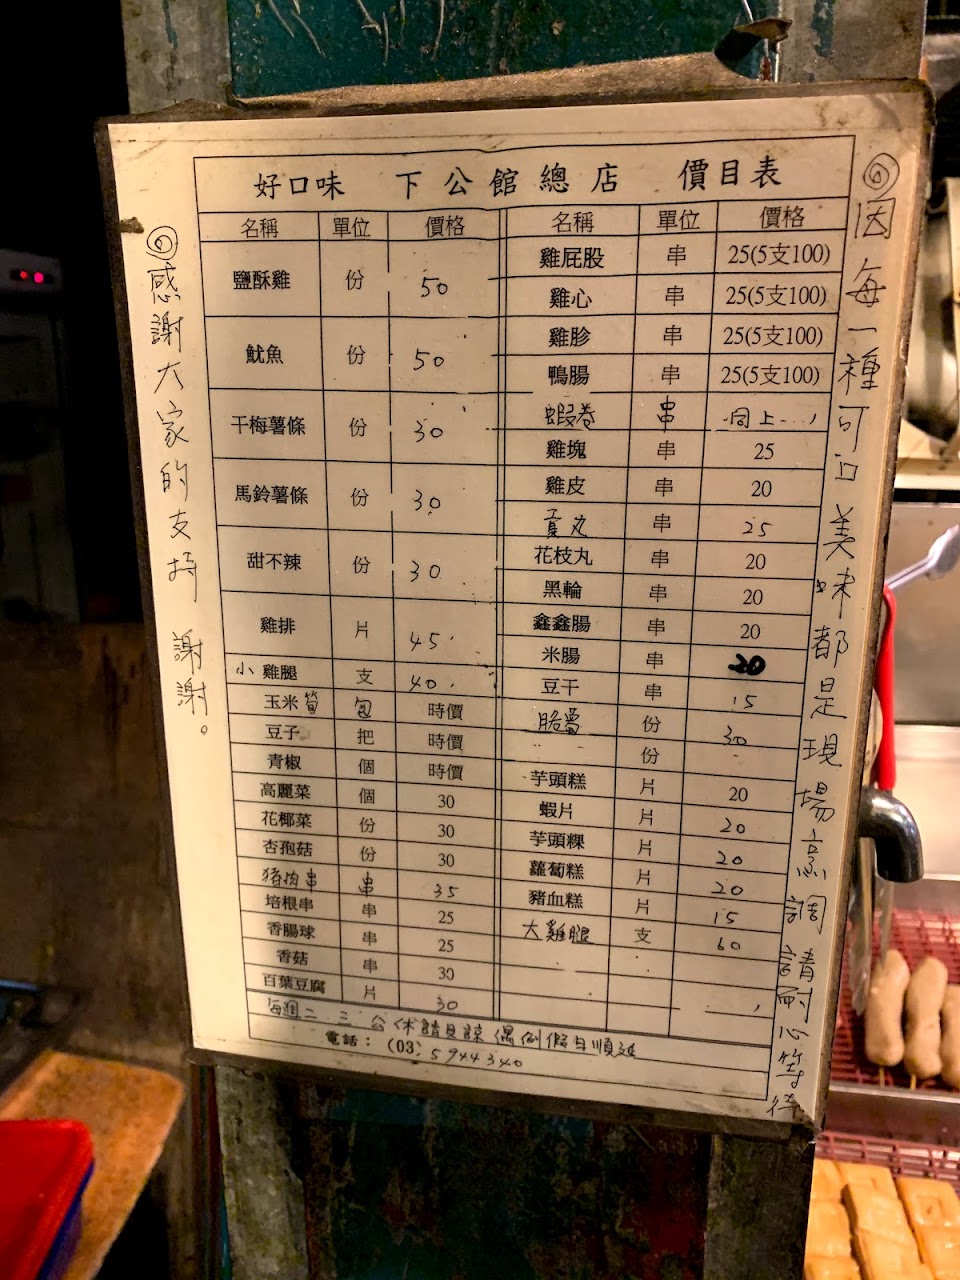 好口味 下公館總店 價目表
名稱 單位 價格
鹽酥雞 份 50
魷魚 份 50
干梅薯條 份 30
馬鈴薯條 份 30
甜不辣 份 30
雞排 片 45
小雞腿 支 40
玉米筍 包 時價
豆子 把 時價
青椒 個 時價
高麗菜 個 30
花椰菜 份 30
杏孢菇 份 30
豬肉串 串 35
培根串 串 25
香腸球 串 25
香菇 串 30
百葉豆腐 片 30
名稱 單位 價格
雞屁股 串 25(5支100)
雞心 串 25(5支100)
雞胗 串 25(5支100)
鴨腸 串 25(5支100)
蝦卷 串 同上
雞塊 串 25
雞皮 串 20
貢丸 串 25
花枝丸 串 20
黑輪 串 20
鑫鑫腸 串 20
米腸 串 20
豆干 串 15
份 30
份
芋頭糕 片 20
蝦片 片 20
芋頭粿 片 20
蘿蔔糕 片 20
豬血糕 片 15
大雞腿 支 60
每週二、三公休請見諒 遇例假日順延
電話：(03) 5944340
感謝大家的支持 謝謝。
因每一種可口美味都是現場烹調請耐心等待